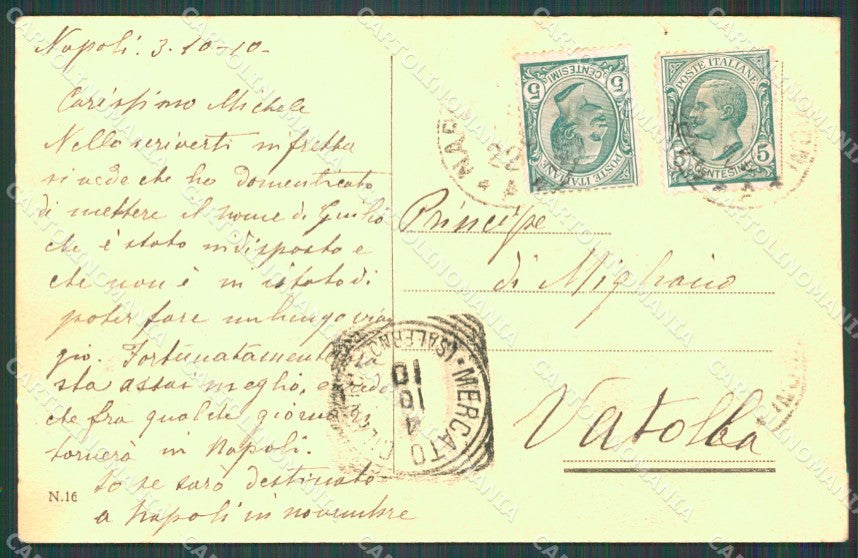 Napoli. 3-10-10-
Carissimo Michele
Nello scriverti in fretta
si vede che ho domenticato
di mettere il nome di Giulio
che è stato indisposto e
che non è in istato di
poter fare un lungo viag
gio. Fortunatamente
sta assai meglio, e credo
che fra qualche giorno
tornerà in Napoli.
Io se sarò destinato
a Napoli in novembre
N.16
POSTE ITALIANE
5 CENTESIMI 5
POSTE ITALIANE
5 CENTESIMI 5
Principe
di Migliano
Vatolla
MERCATO CILENTO
(SALERNO)
4
10
10
CARTOLINOMANIA